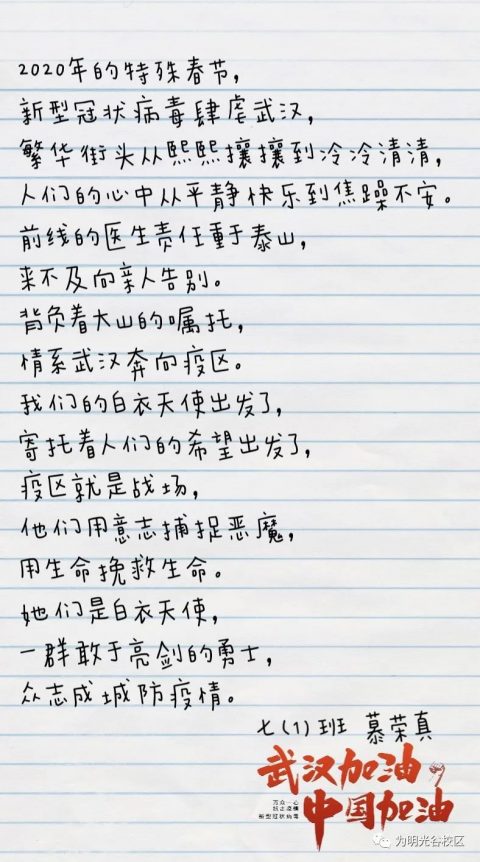 2020年的特殊春节，
新型冠状病毒肆虐武汉，
繁华街头从熙熙攘攘到冷冷清清，
人们的心中从平静快乐到焦躁不安。
前线的医生责任重于泰山，
来不及向亲人告别。
背负着大山的嘱托，
情系武汉奔向疫区。
我们的白衣天使出发了，
寄托着人们的希望出发了，
疫区就是战场，
他们用意志捕捉恶魔，
用生命挽救生命。
她们是白衣天使，
一群敢于亮剑的勇士，
众志成城防疫情。
七(1)班 慕荣真
武汉加油
万众一心
抗击疫情
新型冠状病毒
中国加油
为明光谷校区